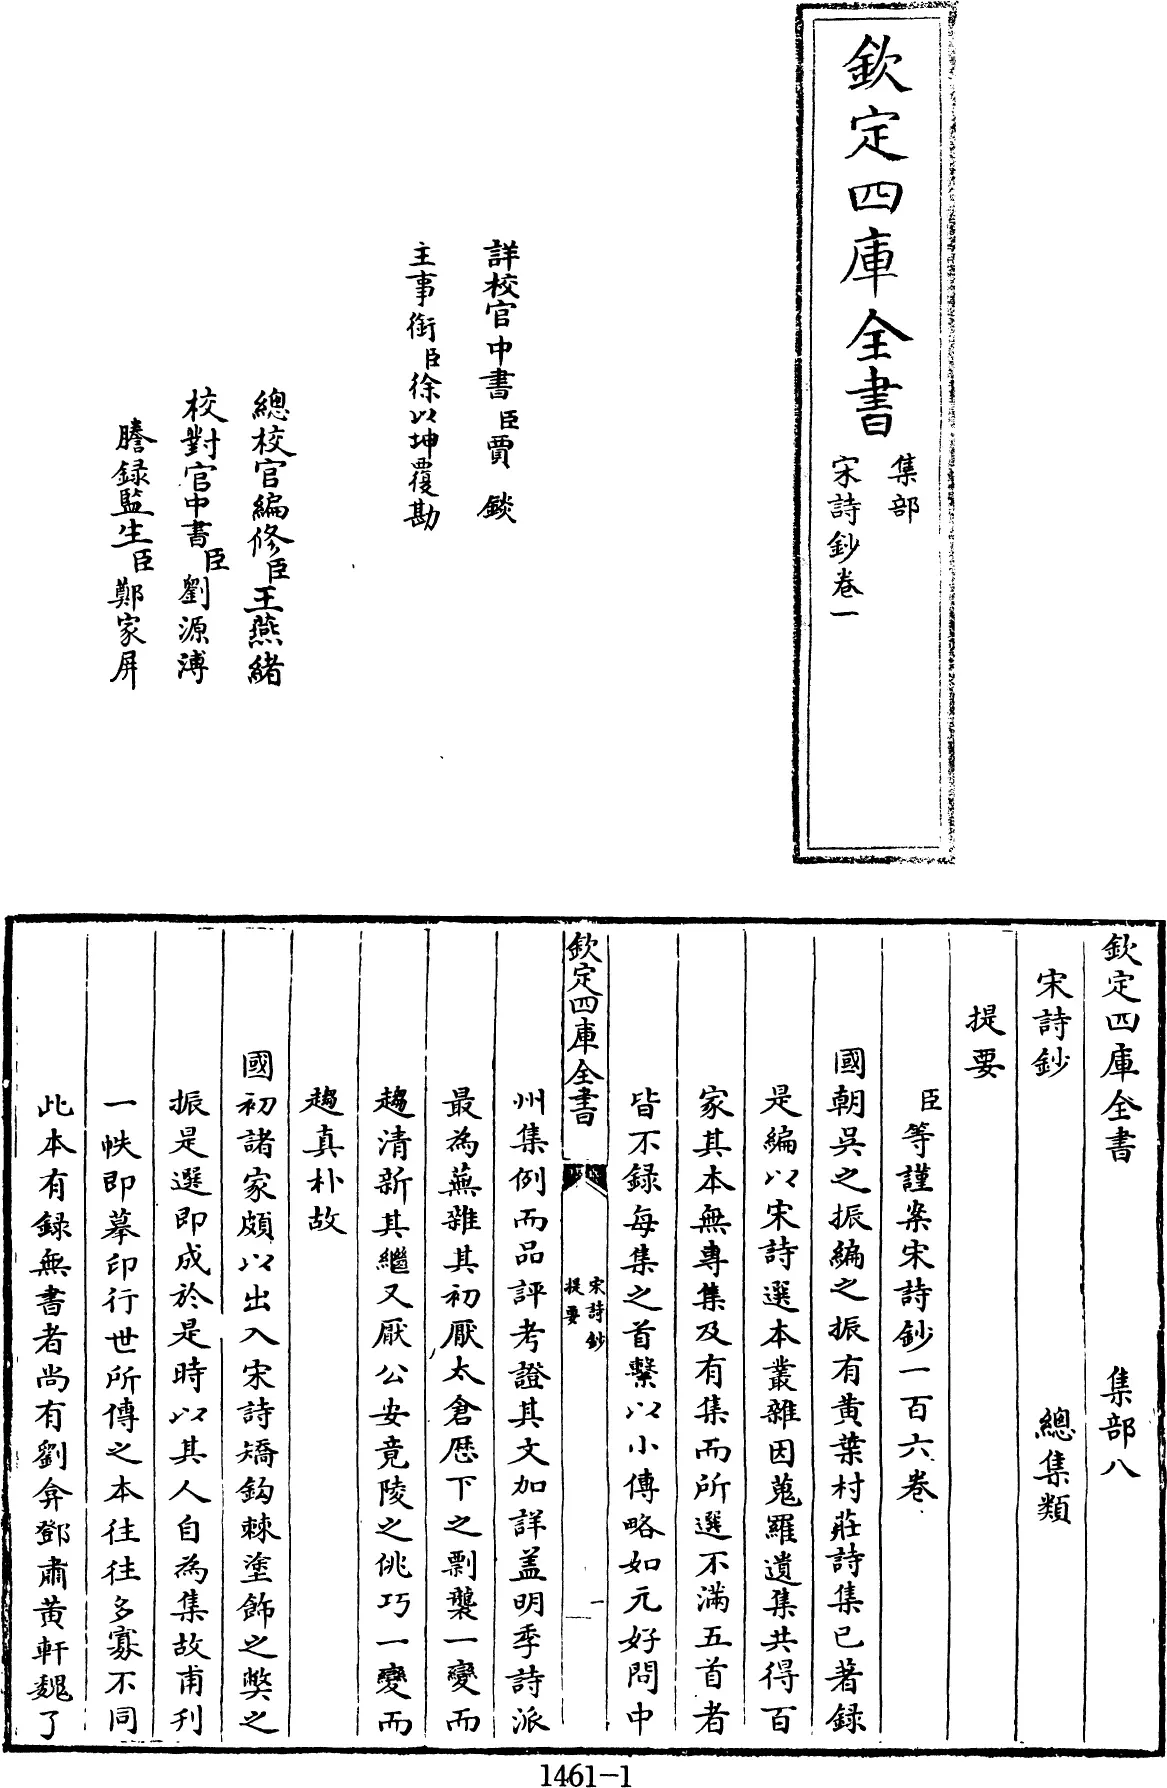 欽定四庫全書
集部
宋詩鈔卷一
詳校官中書臣賈錟
主事銜臣徐以坤覆勘
總校官編修臣王燕緒
校對官中書臣劉源溥
謄録監生臣鄭家屏
欽定四庫全書 集部八
宋詩鈔 總集類
提要
臣等謹案宋詩鈔一百六卷
國朝吳之振編之振有黄葉村莊詩集已著録
是編以宋詩選本叢雜因蒐羅遺集共得百
家其本無專集及有集而所選不滿五首者
皆不録每集之首繫以小傳略如元好問中
欽定四庫全書
宋詩鈔
提要
一
州集例而品評考證其文加詳盖明季詩派
最為蕪雜其初厭太倉歴下之剽襲一變而
趨清新其繼又厭公安竟陵之佻巧一變而
趨真朴故
國初諸家頗以出入宋詩矯鈎棘塗飾之獘之
振是選即成於是時以其人自為集故甫刋
一帙即摹印行世所傳之本往往多寡不同
此本有録無書者尚有劉弇鄧肅黄軒魏了
1461-1